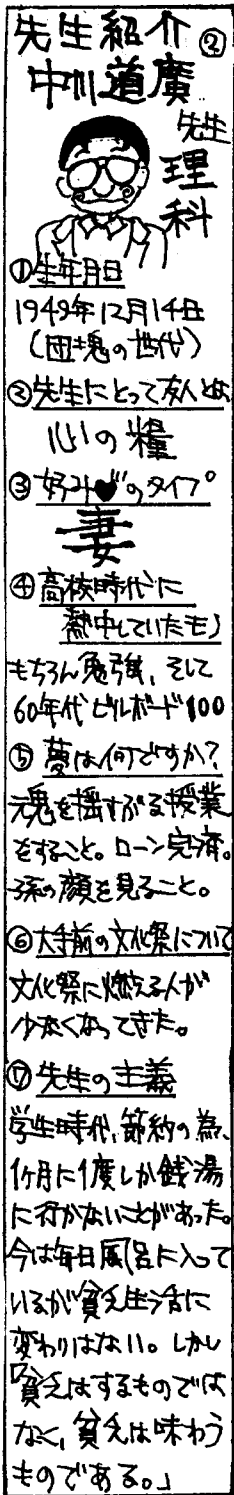 先生紹介②
中川道廣
先生
理科
①生年月日
1949年12月14日
(団塊の世代)
②先生にとって友人とは
心の糧
③好み♥のタイプ。
妻
④高校時代に
熱中していたモノ
もちろん勉強、そして
60年代ビルボード100
⑤夢は何ですか?
魂を揺すぶる授業
をすること。ローン完済。
孫の顔を見ること。
⑥大手前の文化祭について
文化祭に燃える人が
少なくなってきた。
⑦先生の主義
学生時代、節約の為、
1ヶ月に1度しか銭湯
に行かないことがあった。
今は毎日風呂に入って
いるが貧乏生活に
変わりはない。しかし
「貧乏はするものでは
なく、貧乏は味わう
ものである。」